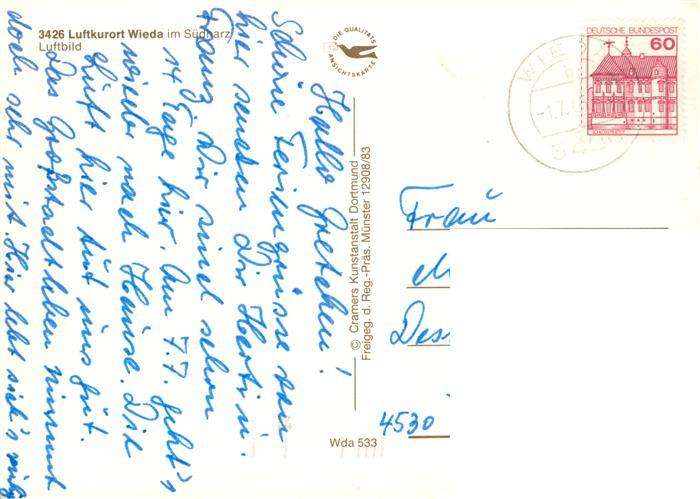 3426 Luftkurort Wieda im Südharz
Luftbild
DIE QUALITÄTS
ANSICHTSKARTE
Hallo Gretchen!
Schöne Feriengrüsse von
hier senden Dir Herti u.
Franz. Wir sind schon
14 Tage hier. Am 7.7. geht's
wieder nach Hause. Die
Luft hier tut uns gut.
Das Großstadtleben nimmt
doch sehr mit. Hier lebt sich's ruhig
© Cramers Kunstanstalt Dortmund
Freigeg. d. Reg.-Präs. Münster 12908/83
Wda 533
DEUTSCHE BUNDESPOST
60
WIE
-1.7.
Frau
M
Des
4530